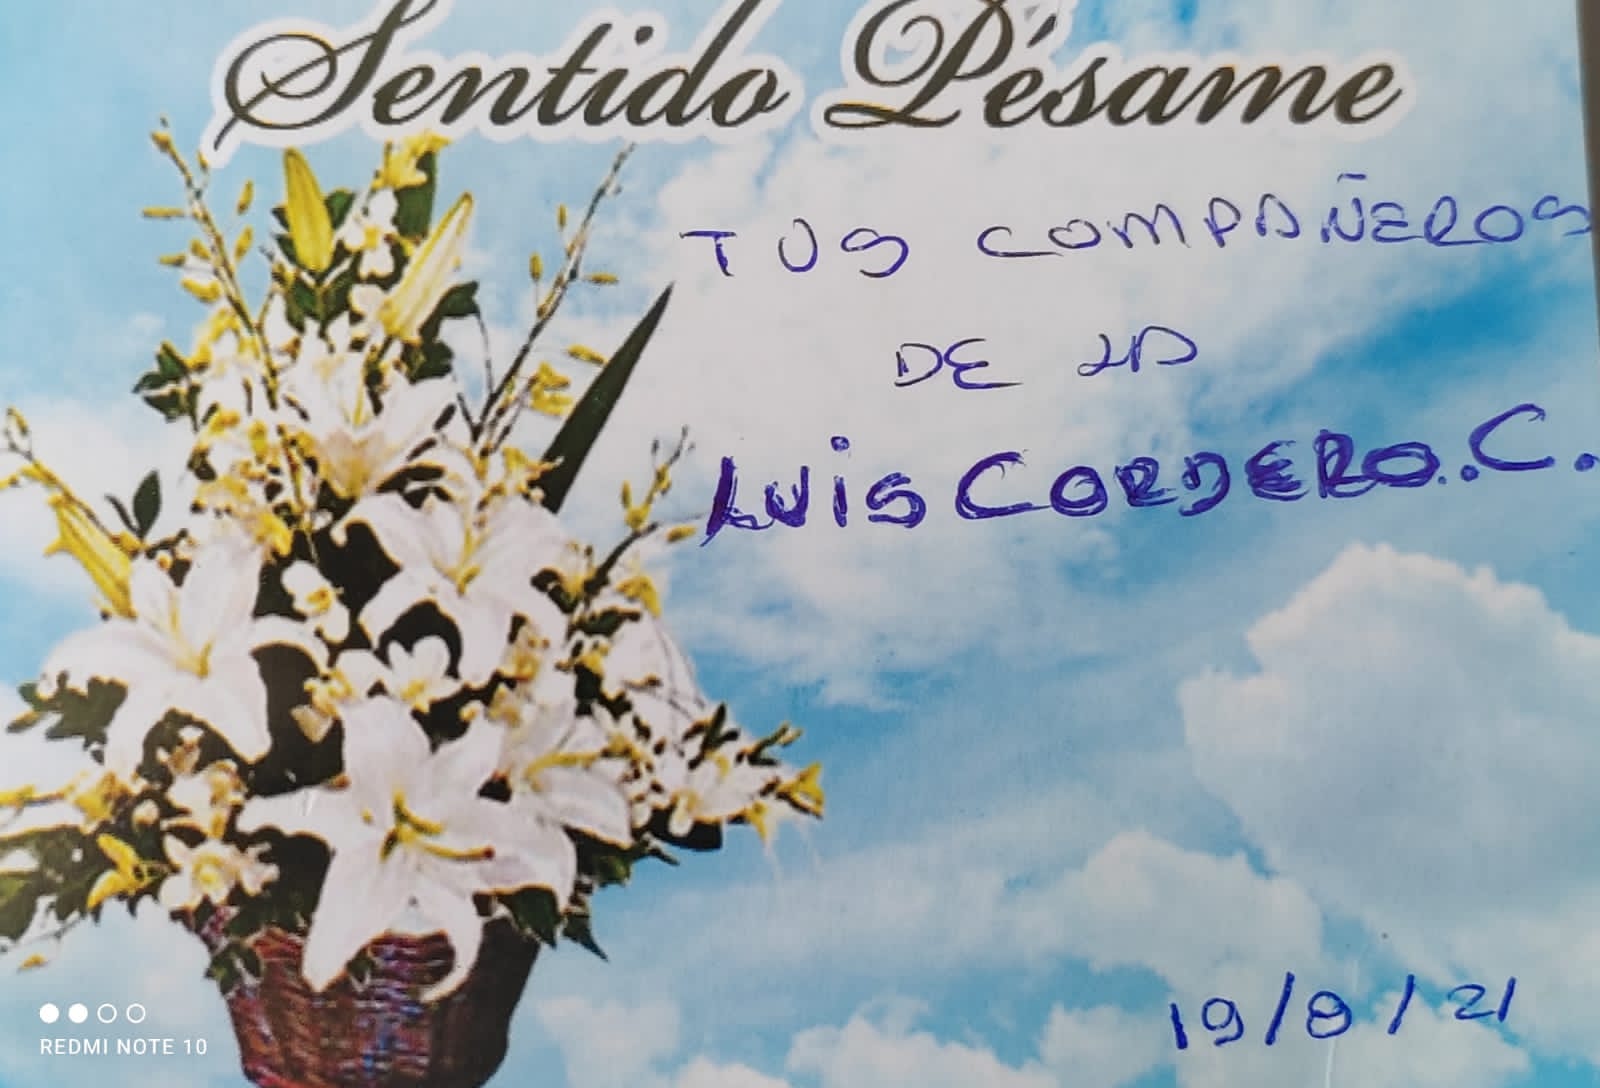 Sentido Pésame
TUS COMPAÑEROS
DE LA
LUIS CORDERO.C.
19/8/21
REDMI NOTE 10